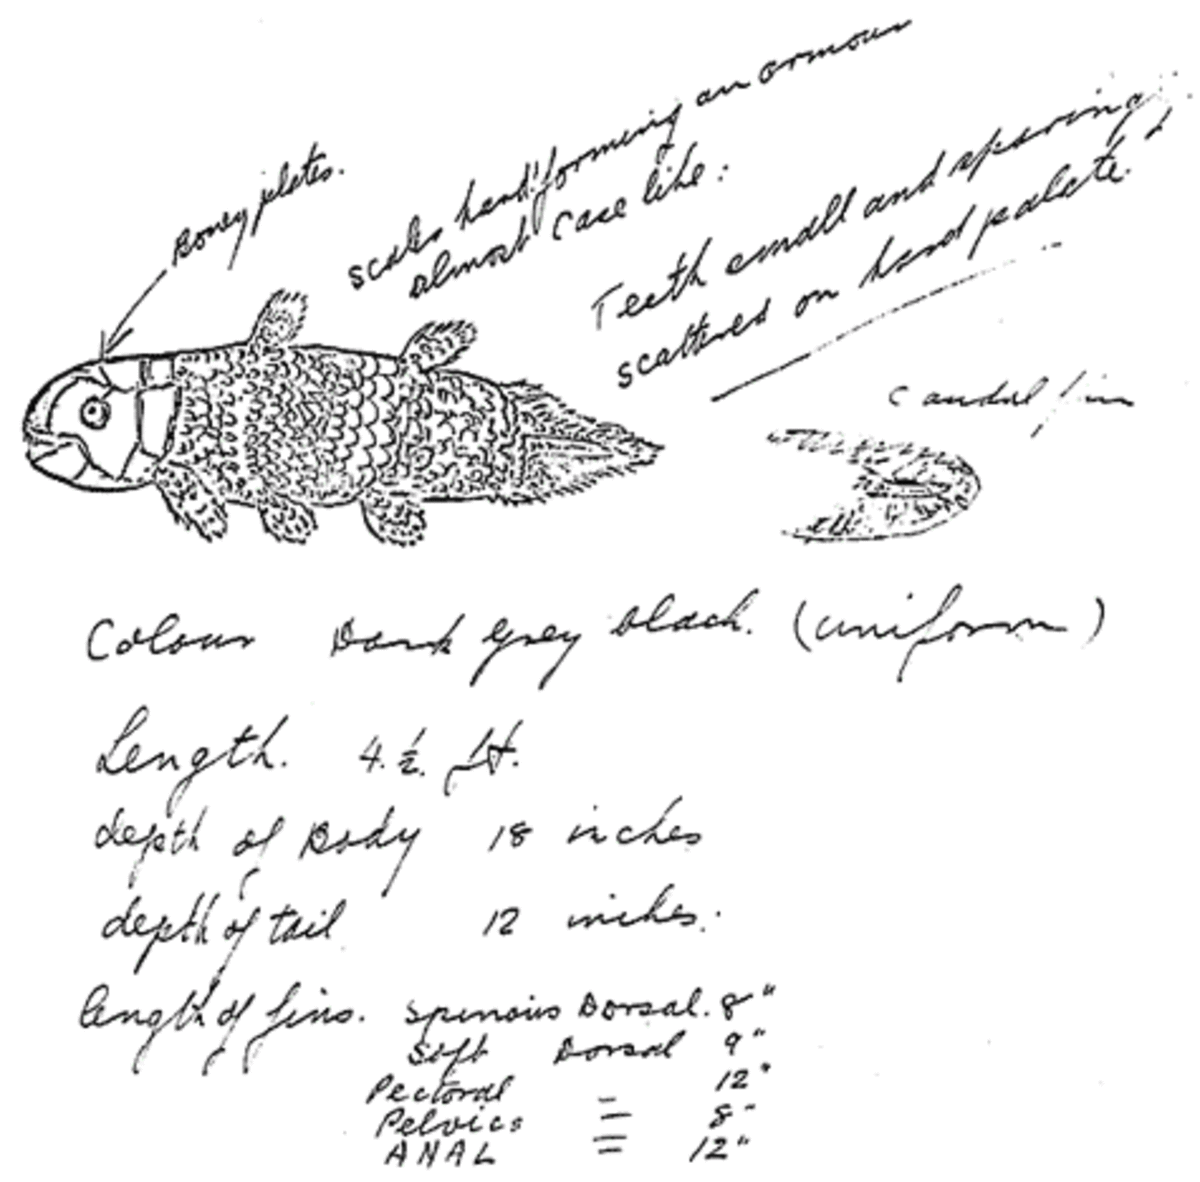 Boney plates.
scales hard forming an armour
almost case like:
Teeth small and sparing,
scattered on hard palate.
Caudal fin
Colour Dark grey black. (uniform)
Length. 4.½. ft.
depth of Body 18 inches
depth of tail 12 inches.
length of fins. Spinous Dorsal. 8"
Soft Dorsal 9"
Pectoral - 12"
Pelvics = 8"
ANAL = 12"